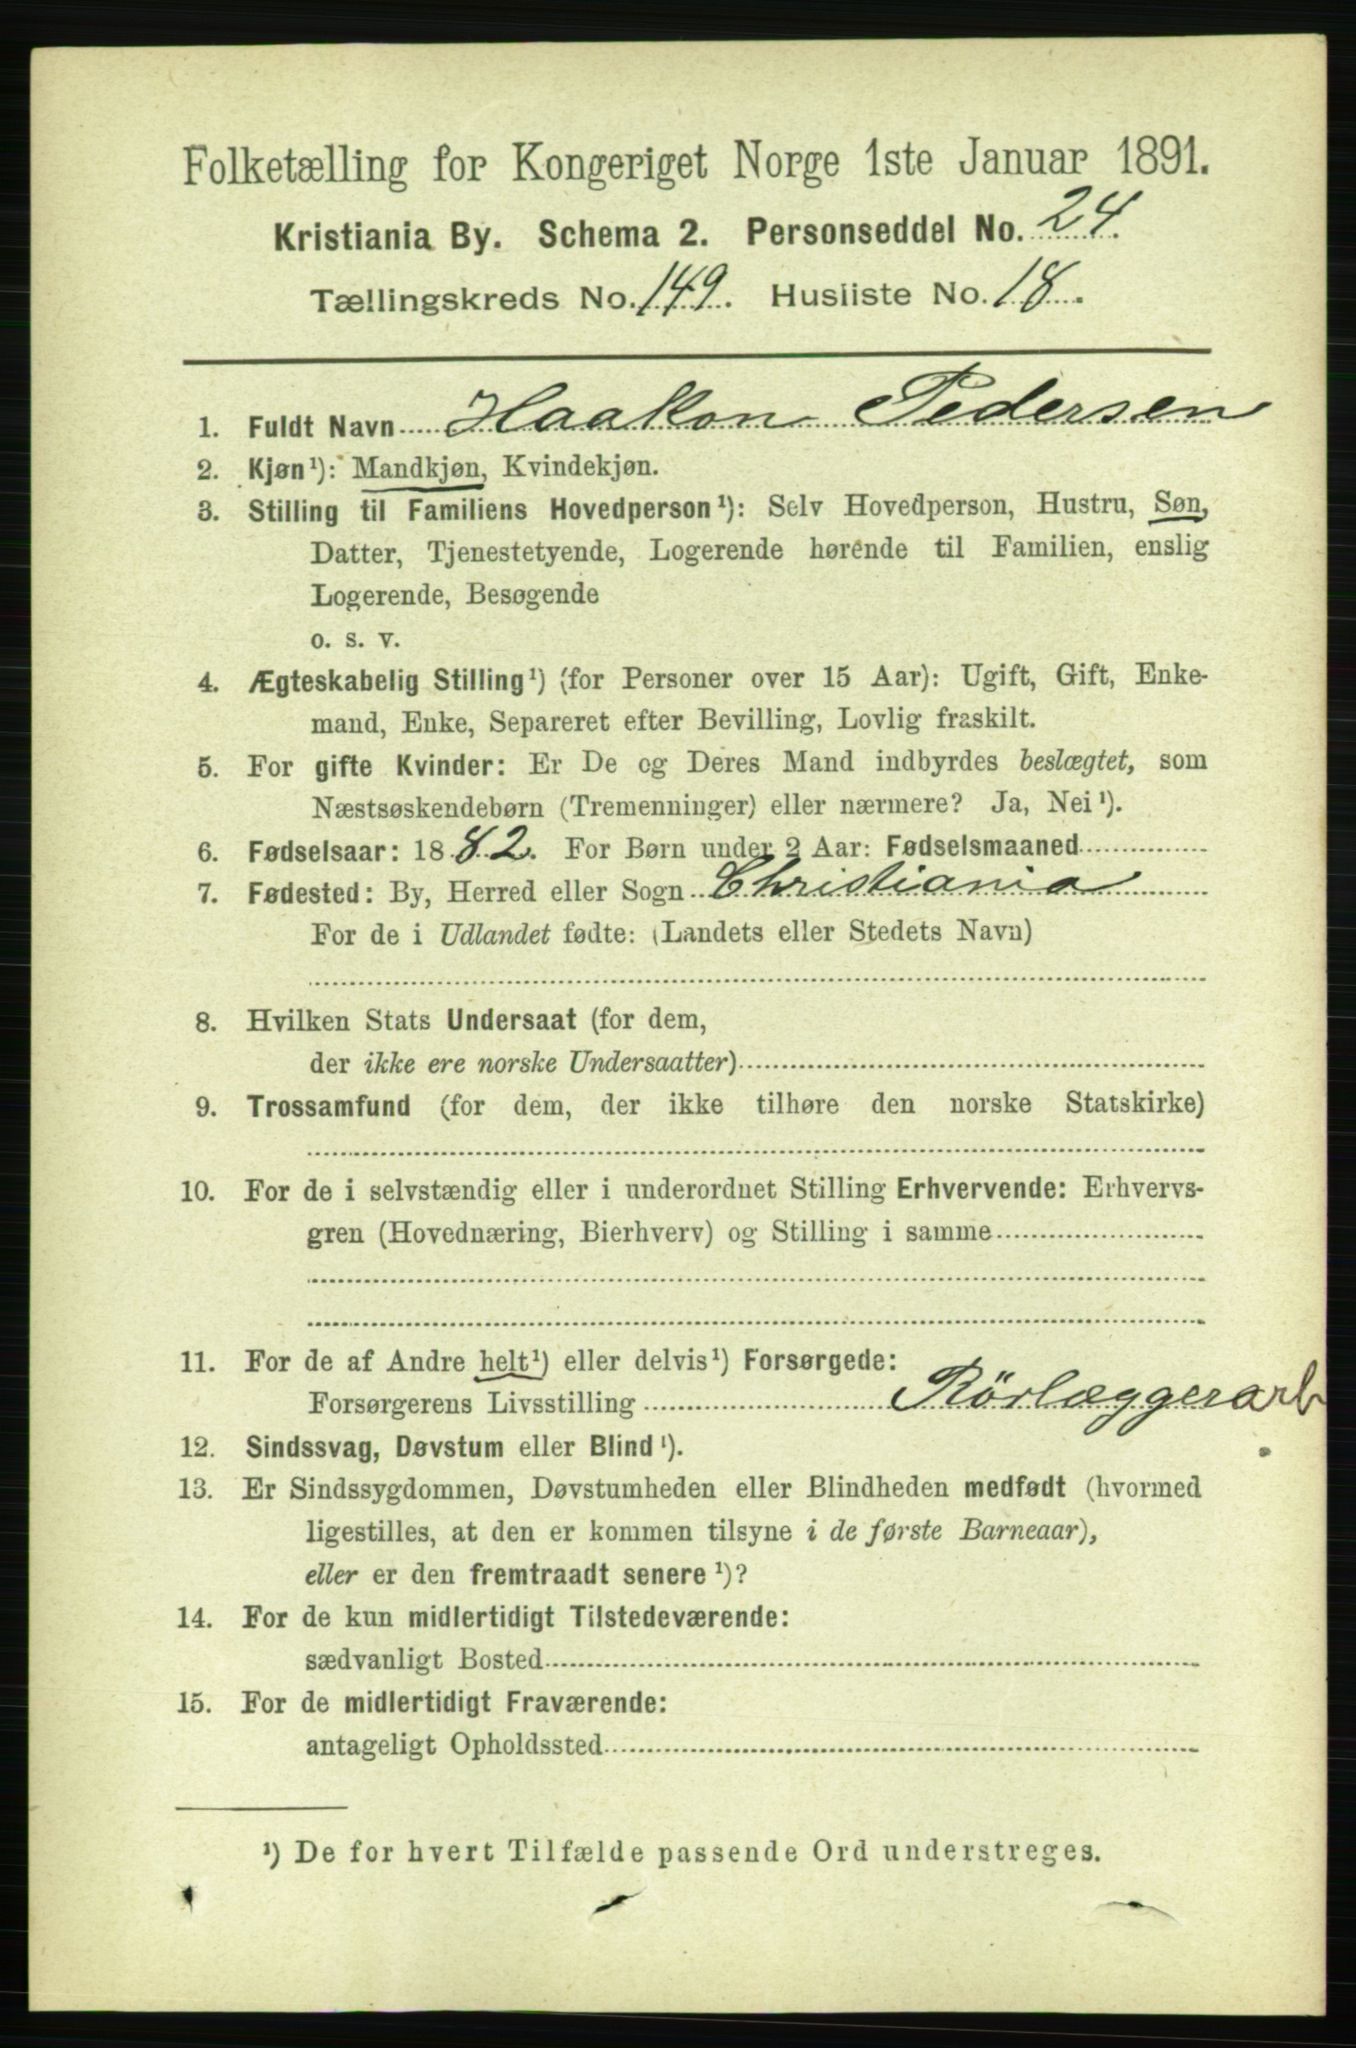 Folketælling for Kongeriget Norge 1ste Januar 1891.
Kristiania By. Schema 2. Personseddel No. 24.
Tællingskreds No. 149. Husliste No. 18.
1. Fuldt Navn Haakon Pedersen
2. Kjøn¹): Mandkjøn, Kvindekjøn.
3. Stilling til Familiens Hovedperson¹): Selv Hovedperson, Hustru, Søn,
Datter, Tjenestetyende, Logerende hørende til Familien, enslig
Logerende, Besøgende
o. s. v.
4. Ægteskabelig Stilling¹) (for Personer over 15 Aar): Ugift, Gift, Enke-
mand, Enke, Separeret efter Bevilling, Lovlig fraskilt.
5. For gifte Kvinder: Er De og Deres Mand indbyrdes beslægtet, som
Næstsøskendebørn (Tremenninger) eller nærmere? Ja, Nei¹).
6. Fødselsaar: 1882. For Børn under 2 Aar: Fødselsmaaned
7. Fødested: By, Herred eller Sogn Christiania
For de i Udlandet fødte: (Landets eller Stedets Navn)
8. Hvilken Stats Undersaat (for dem,
der ikke ere norske Undersaatter)
9. Trossamfund (for dem, der ikke tilhøre den norske Statskirke)
10. For de i selvstændig eller i underordnet Stilling Erhvervende: Erhvervs-
gren (Hovednæring, Bierhverv) og Stilling i samme
11. For de af Andre helt¹) eller delvis¹) Forsørgede:
Forsørgerens Livsstilling Rörlæggerarb
12. Sindssvag, Døvstum eller Blind¹).
13. Er Sindssygdommen, Døvstumheden eller Blindheden medfødt (hvormed
ligestilles, at den er kommen tilsyne i de første Barneaar),
eller er den fremtraadt senere¹)?
14. For de kun midlertidigt Tilstedeværende:
sædvanligt Bosted
15. For de midlertidigt Fraværende:
antageligt Opholdssted
¹) De for hvert Tilfælde passende Ord understreges.